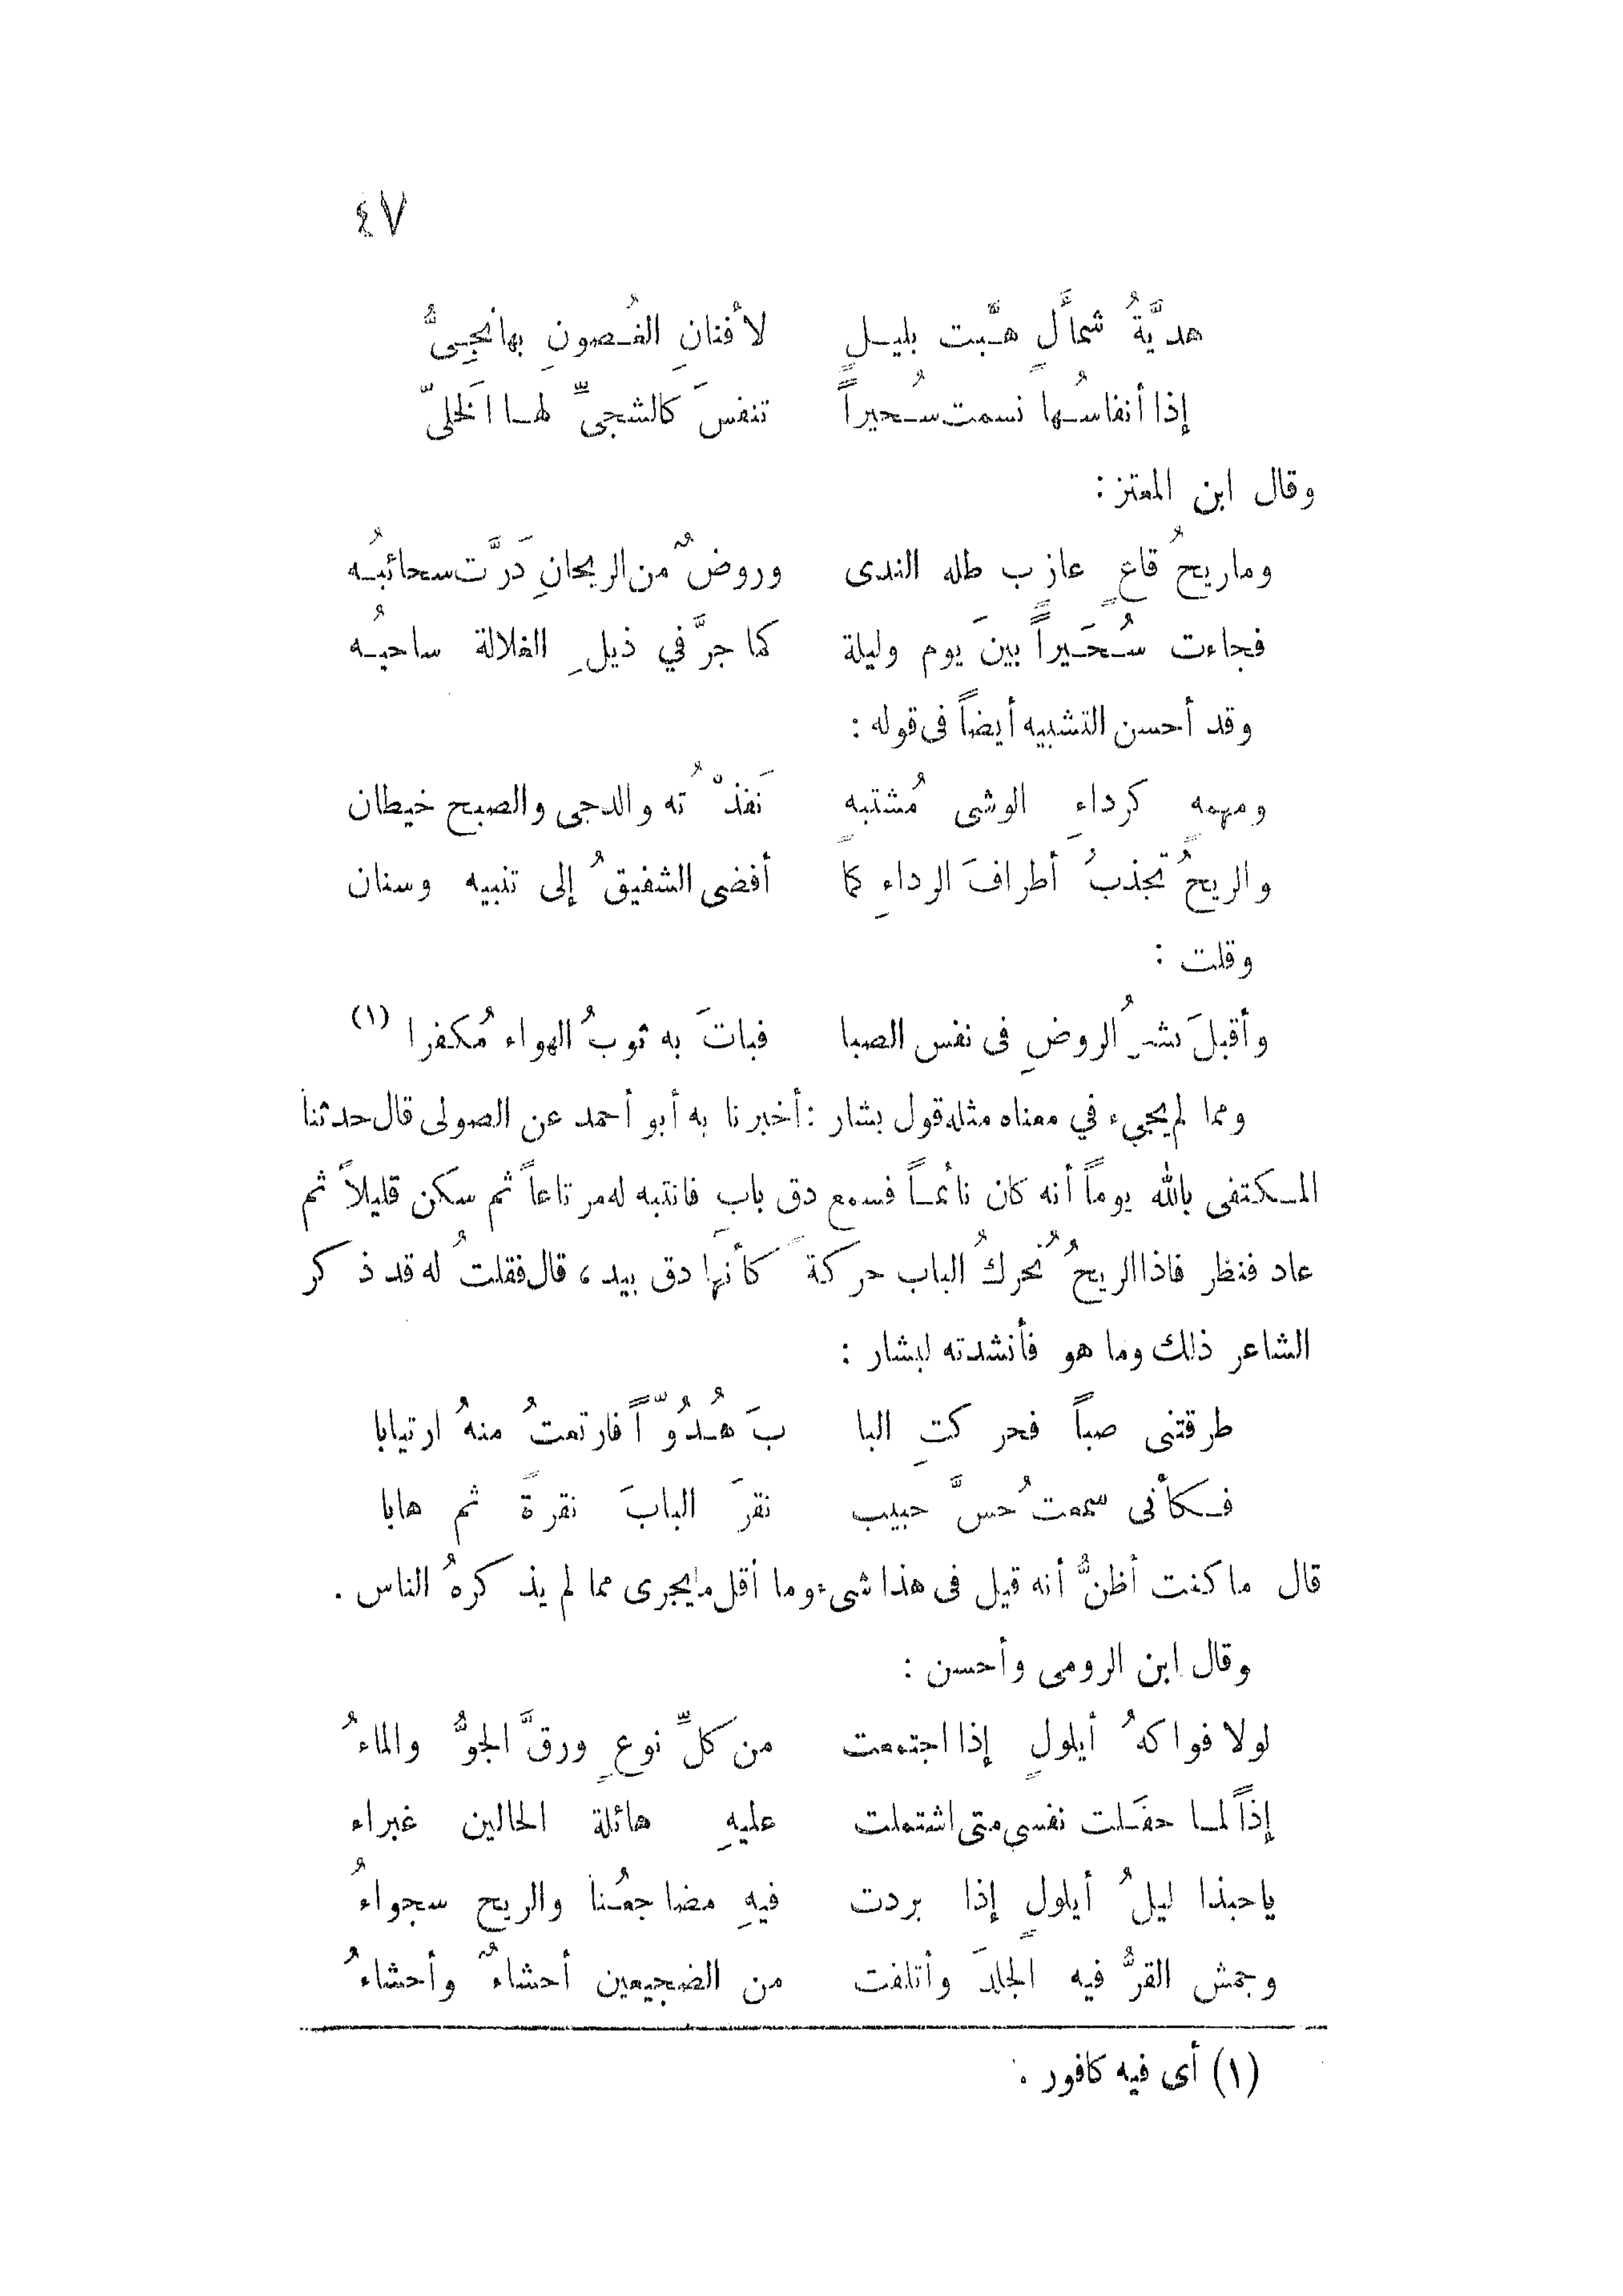 ٤٧
هديَّةُ شمأَلٍ هبَّت بليلٍ لأفنانِ الغُصونِ بها نجِىُّ
إذا أنفاسُها نسمت سُحيراً تنفسَ كالشجىِّ لها الَخلىّ
وقال ابن المعتز :
وماريحُ قاعٍ عازبٍ طله الندى وروضٌ من الريحانِ دَرَّت سحائبُه
فجاءت سُحَيراً بينَ يوم وليلة كما جرَّ في ذيلِ الغلالة ساحبُه
وقد أحسن التشبيه أيضاً فى قوله :
ومهمهٍ كرداءِ الوشى مُشتبهٍ نَفذْتُه والدجى والصبح خيطان
والريحُ تجذبُ أطرافَ الرداءِ كما أفضى الشفيقُ إلى تنبيه وسنان
وقلت :
وأقبلَ نشرُ الروضِ فى نفس الصبا فباتَ به ثوبُ الهواء مُكفرا (١)
ومما لم يجيء في معناه مثله قول بشار : أخبرنا به أبو أحمد عن الصولى قال حدثنا
المكتفى بالله يوماً أنه كان نائماً فسمع دق بابٍ فانتبه له مرتاعاً ثم سكن قليلاً ثم
عاد فنظر فاذا الريحُ تُحركُ الباب حركةً كأنها دق بيد ، قال فقلتُ له قد ذكر
الشاعر ذلك وما هو فأنشدته لبشار :
طرقتنى صباً فحركتِ البا بَ هُدُوّاً فارتعتُ منهُ ارتيابا
فكأنى سمعتُ حسَّ حبيب نقرَ البابَ نقرةً ثم هابا
قال ما كنت أظنُّ أنه قيل فى هذا شىء وما أقل مايجرى مما لم يذكرهُ الناس .
وقال ابن الرومى وأحسن :
لولا فواكهُ أيلولٍ إذا اجتمعت من كلِّ نوعٍ ورقَّ الجوُّ والماءُ
إذاً لما حفَلت نفسى متى اشتملت عليهِ هائلة الحالين غبراء
ياحبذا ليلُ أيلولٍ إذا بردت فيهِ مضاجعُنا والريح سجواءُ
وجمش القرُّ فيه الجلدَ وأتلفت من الضجيعين أحشاءٌ وأحشاءُ
(١) أى فيه كافور .